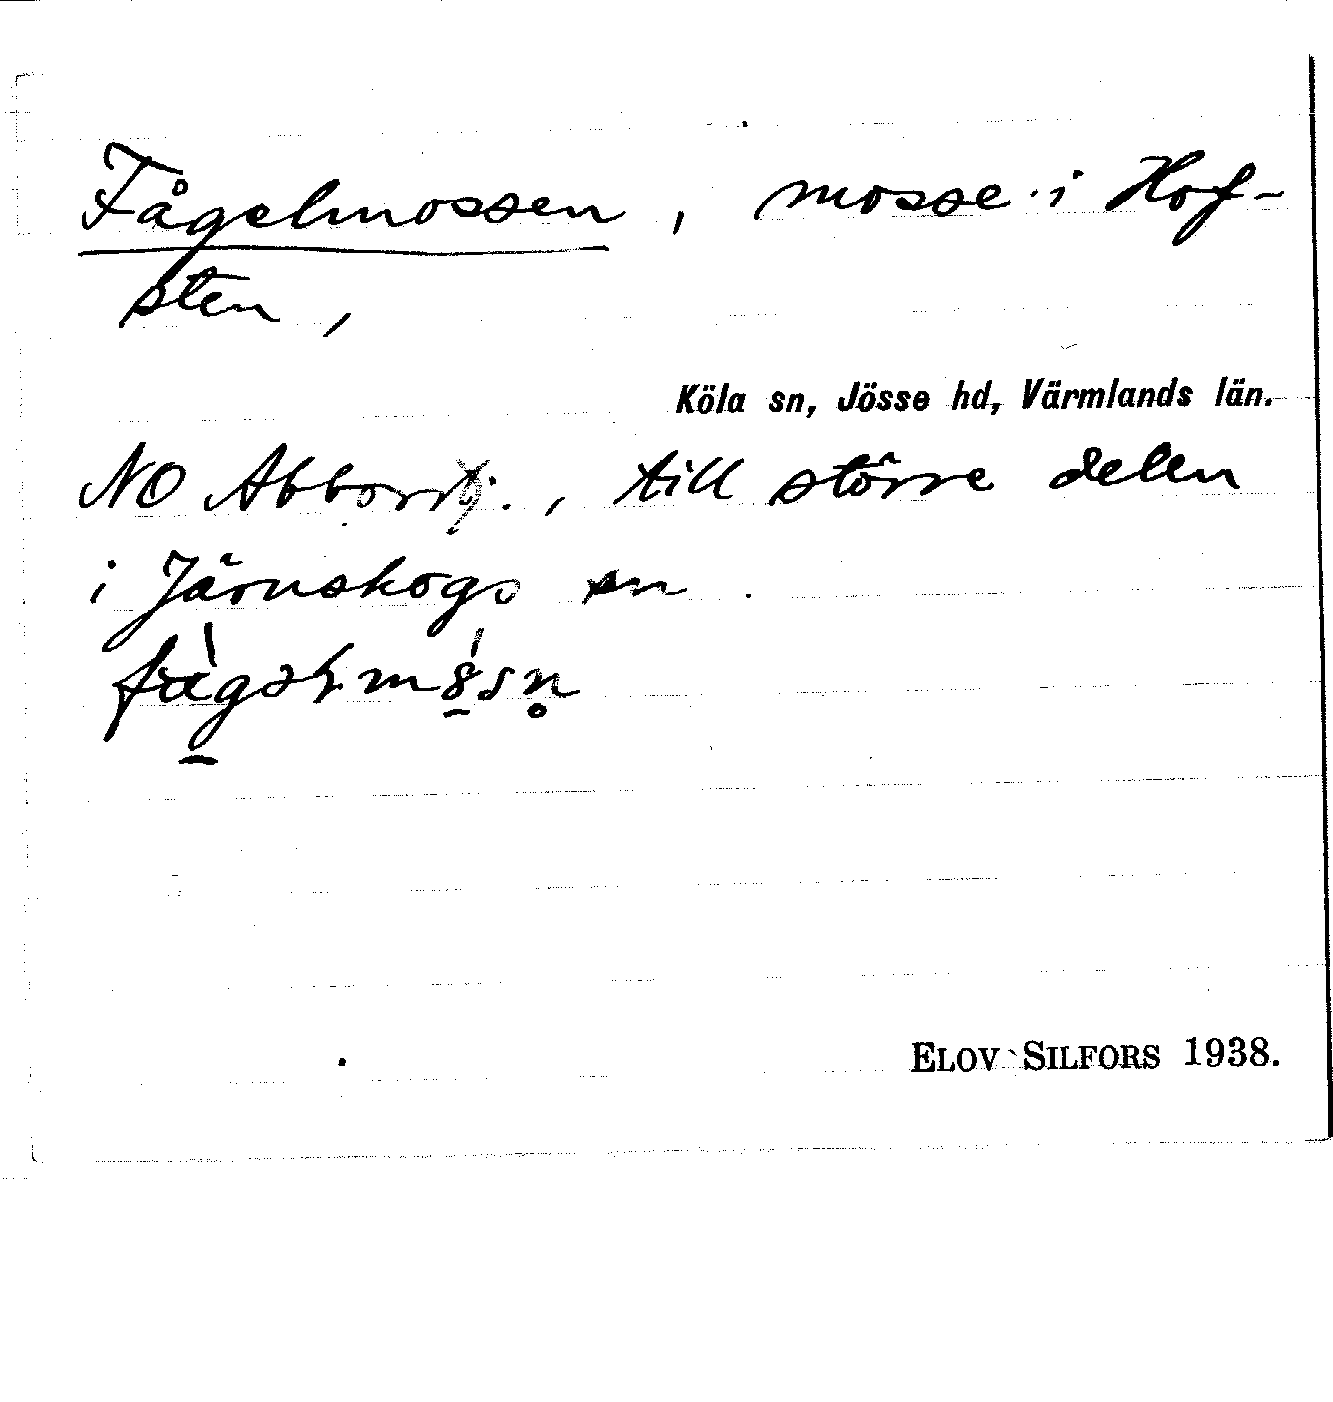 Fågelmossen, mosse i Hof-
sten,
Köla sn, Jösse hd, Värmlands län.
NO Abborrtj., till större delen
i Järnskogs sn.
ELOV SILFORS 1938.